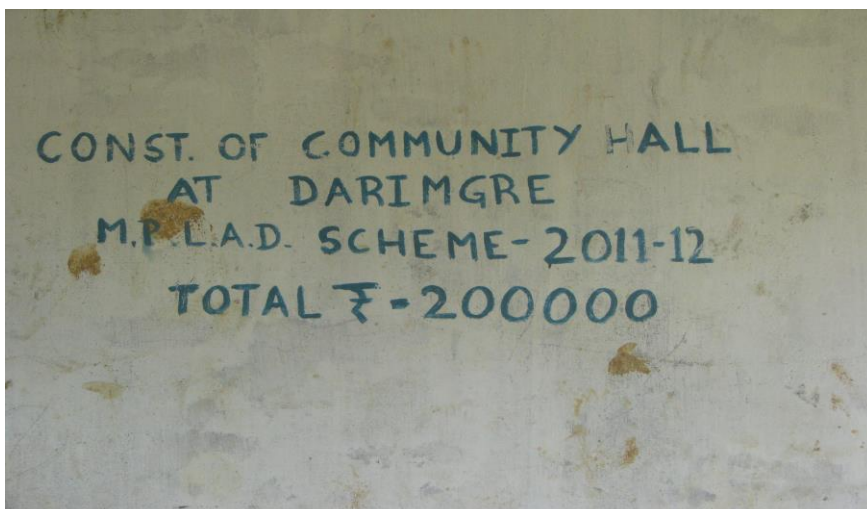 CONST. OF COMMUNITY HALL
AT DARIMGRE
M.P.L.A.D. SCHEME-2011-12
TOTAL ₹-200000